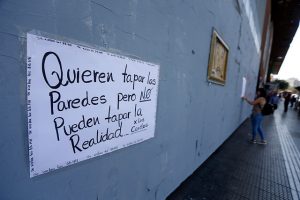 Quieren tapar las
Paredes pero NO!
Pueden tapar la
Realidad...